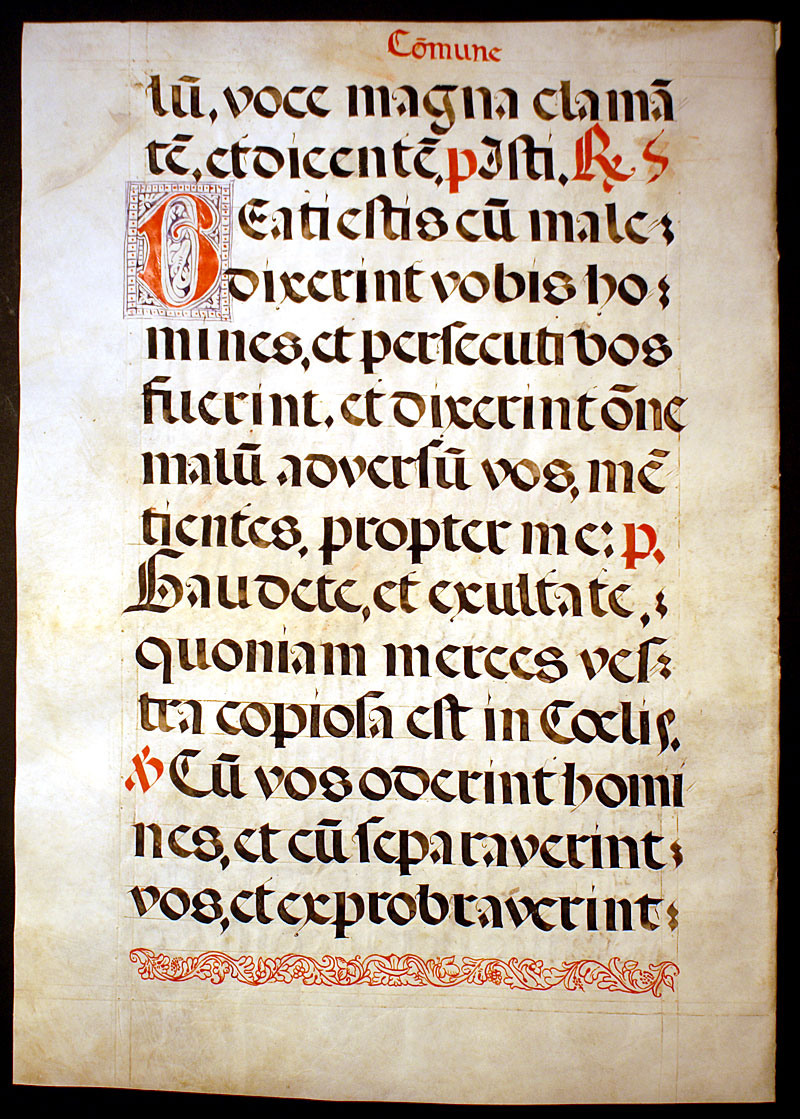 Cōmune
lū, voce magna clamā
tē, et dicentē, p Isti. ℟ 5
BEati estis cū male-
dixerint vobis ho-
mines, et persecuti vos
fuerint, et dixerint ōne
malū adversū vos, mē
tientes, propter me: p.
Gaudete, et exultate,
quoniam merces ves-
tra copiosa est in Cœlis.
℣ Cū vos oderint homi
nes, et cū separaverint
vos, et exprobraverint